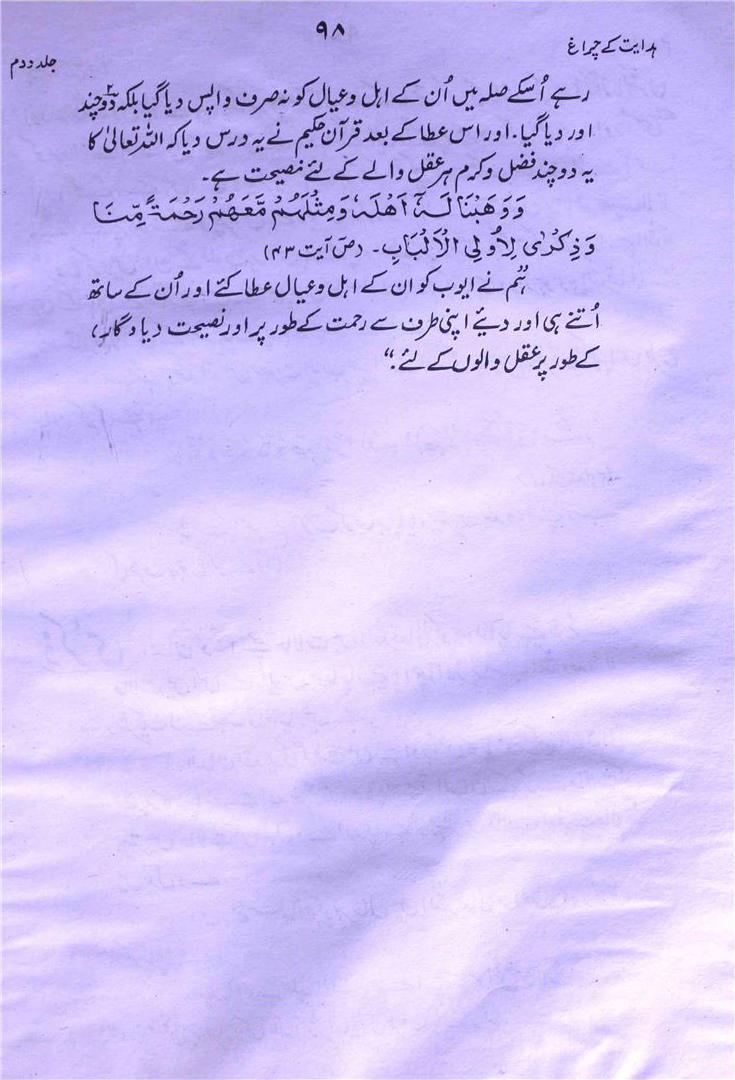 ہدایت کے چراغ
۹۸
جلد دوم
رہے اُسکے صلہ میں اُن کے اہل وعیال کو نہ صرف واپس دیا گیا بلکہ دوچند
اور دیا گیا. اور اس عطا کے بعد قرآن حکیم نے یہ درس دیا کہ اللہ تعالیٰ کا
یہ دوچند فضل وکرم ہر عقل والے کے لئے نصیحت ہے۔
وَوَهَبْنَا لَهٗٓ اَهْلَهٗ وَمِثْلَهُمْ مَّعَهُمْ رَحْمَةً مِّنَّا
وَذِكْرٰى لِاُولِى الْاَلْبَابِ۔ (صٓ آیت ۴۳)
ہم نے ایوب کو ان کے اہل وعیال عطا کئے اور اُن کے ساتھ
اُتنے ہی اور دیئے اپنی طرف سے رحمت کے طور پر اور نصیحت (یادگار)
کے طور پر عقل والوں کے لئے."